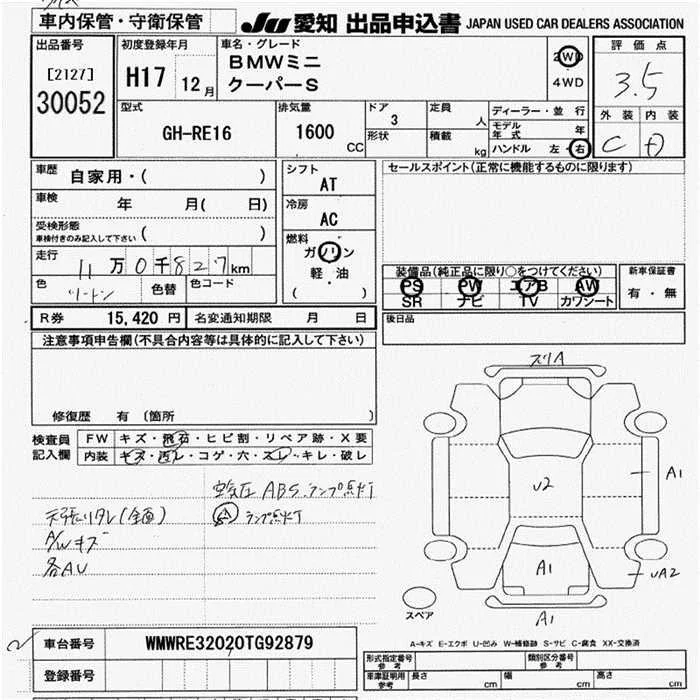 車内保管・守衛保管
JU 愛知 出品申込書 JAPAN USED CAR DEALERS ASSOCIATION
出品番号
[2127]
30052
初度登録年月
H17 12月
車名・グレード
BMWミニ
クーパーS
2WD
4WD
評価点
3.5
外装 内装
C D
型式
GH-RE16
排気量
1600 CC
ドア
3
形状
定員
人
積載
kg
ディーラー・並行
モデル年式 年
ハンドル 左・右
車歴 自家用・( )
車検 年 月( 日)
受検形態
車検付きのみ記入して下さい ( )
走行 11万0千827km
色 ツートン 色替 色コード
シフト
AT
冷房
AC
燃料
ガソリン
軽・油
( )
セールスポイント(正常に機能するものに限ります)
装備品(純正品に限り○をつけてください)
PS PW エアB AW
SR ナビ TV カワシート
新車保証書
有・無
R券 15,420円 名変通知期限 月 日
後日品
注意事項申告欄(不具合内容等は具体的に記入して下さい)
修復歴 有 〔箇所 〕
検査員記入欄
FW キズ・飛石・ヒビ割・リペア跡・X要
内装 キズ・汚レ・コゲ・穴・スレ・キレ・破レ
空気圧 ABS ランプ点灯
天張リタレ(全面) ランプ点灯
A/Wキズ
各AU
スリA
U2
A1
A1
UA2
A1
スペア
A-キズ E-エクボ U-凹み W-補修跡 S-サビ C-腐食 XX-交換済
車台番号 WMWRE32020TG92879
登録番号
形式指定番号 参考 類別区分番号 参考
車庫証明用 参考 長さ cm 幅 cm 高さ cm